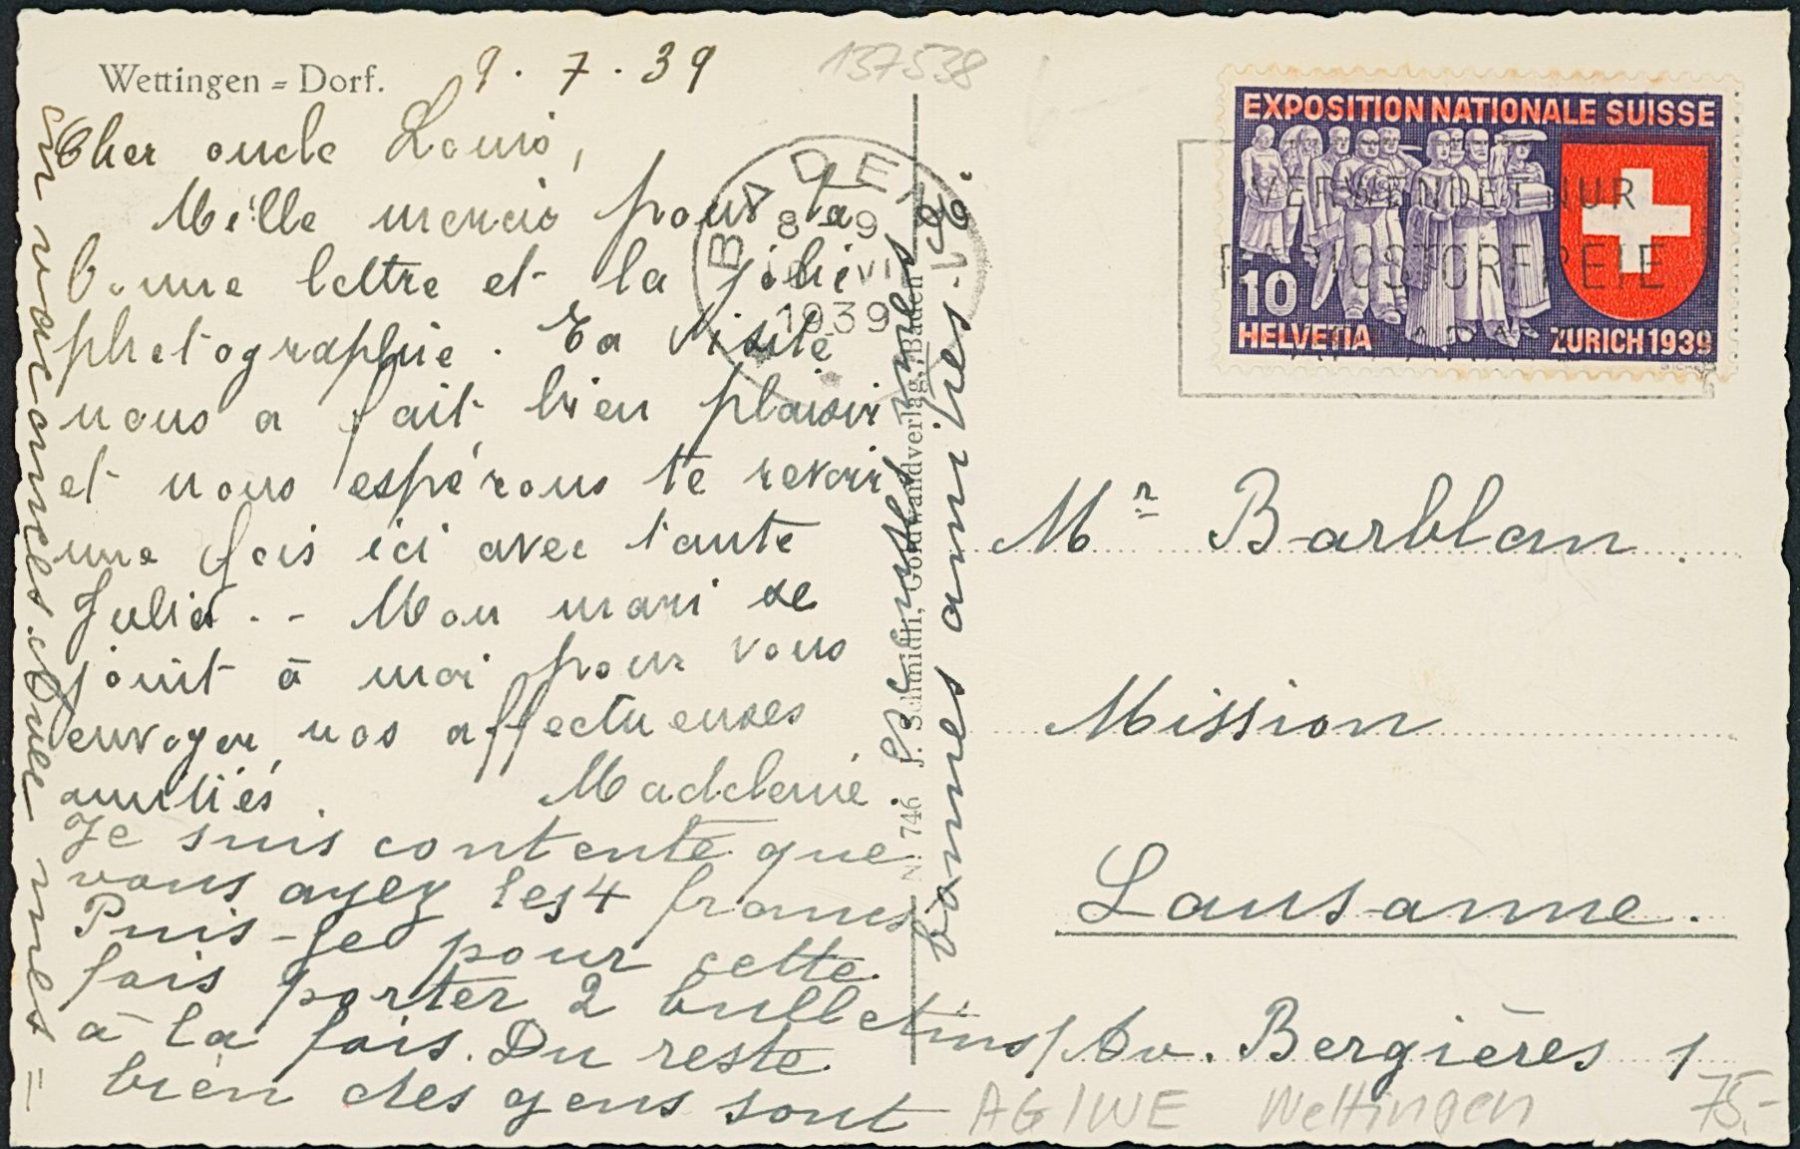 Wettingen = Dorf.
9. 7. 39
137538
Cher oncle Louis,
Mille mercis pour la
bonne lettre et la jolie
photographie. Ta visite
nous a fait bien plaisir
et nous espérons te revoir
une fois ici avec tante
Julia. - Mon mari se
joint à moi pour vous
envoyer nos affectueuses
amitiés. Madeleine.
Je suis contente que
vous ayez les 4 francs
Puis-je pour cette
fois porter 2 bulletins
à la fois. Du reste
bien des gens sont
en vacances. Avec mes =
bonnes amitiés.
No. 746 P. Schmidli, Goldwandverlag, Baden
BADEN
8-9
VII
1939
EXPOSITION NATIONALE SUISSE
10
HELVETIA
ZURICH 1939
VERWENDET NUR
RADIOSTÖRFREIE
APPARATE
Mr Barblan.
Mission
Lausanne.
Av. Bergières 1
AG/WE Wettingen 75.-